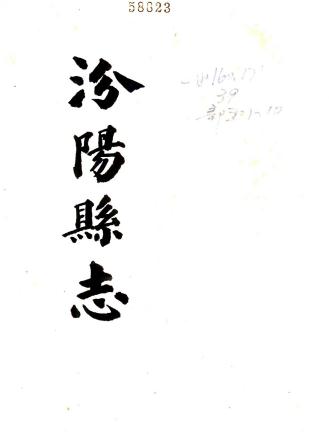 58623
汾陽縣志
39